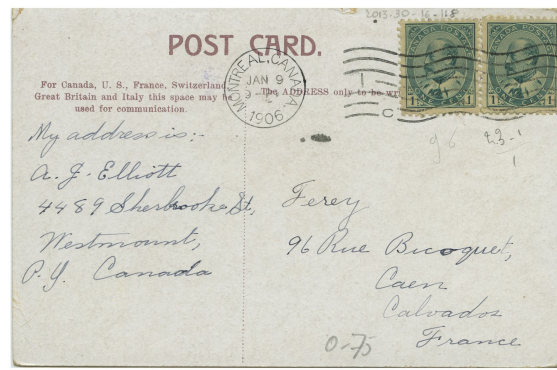 2013-30-16-118
POST CARD.
For Canada, U. S., France, Switzerland
Great Britain and Italy this space may be
used for communication.
The ADDRESS only to be wr
MONTREAL, CANADA
JAN 9
1906
CANADA POSTAGE
1 ONE CENT 1
CANADA POSTAGE
1 ONE CENT 1
96
23-1
1
My address is:-
A. J. Elliott
4489 Sherbrooke St,
Westmount,
P.Q. Canada
Ferey
96 Rue Bicoquet,
Caen
Calvados
France
0-75